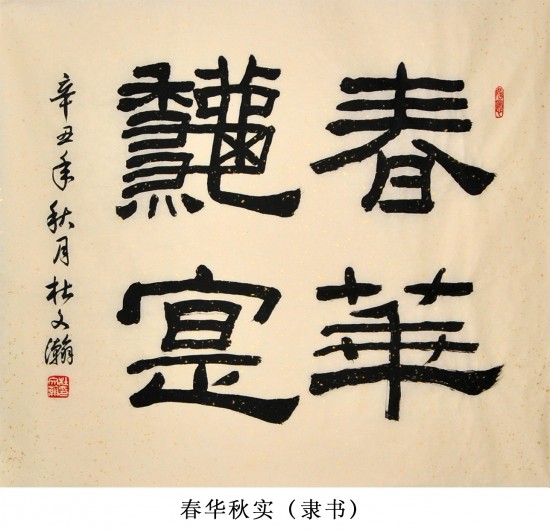 春華
龝寔
辛丑年秋月杜文瀚
春华秋实（隶书）